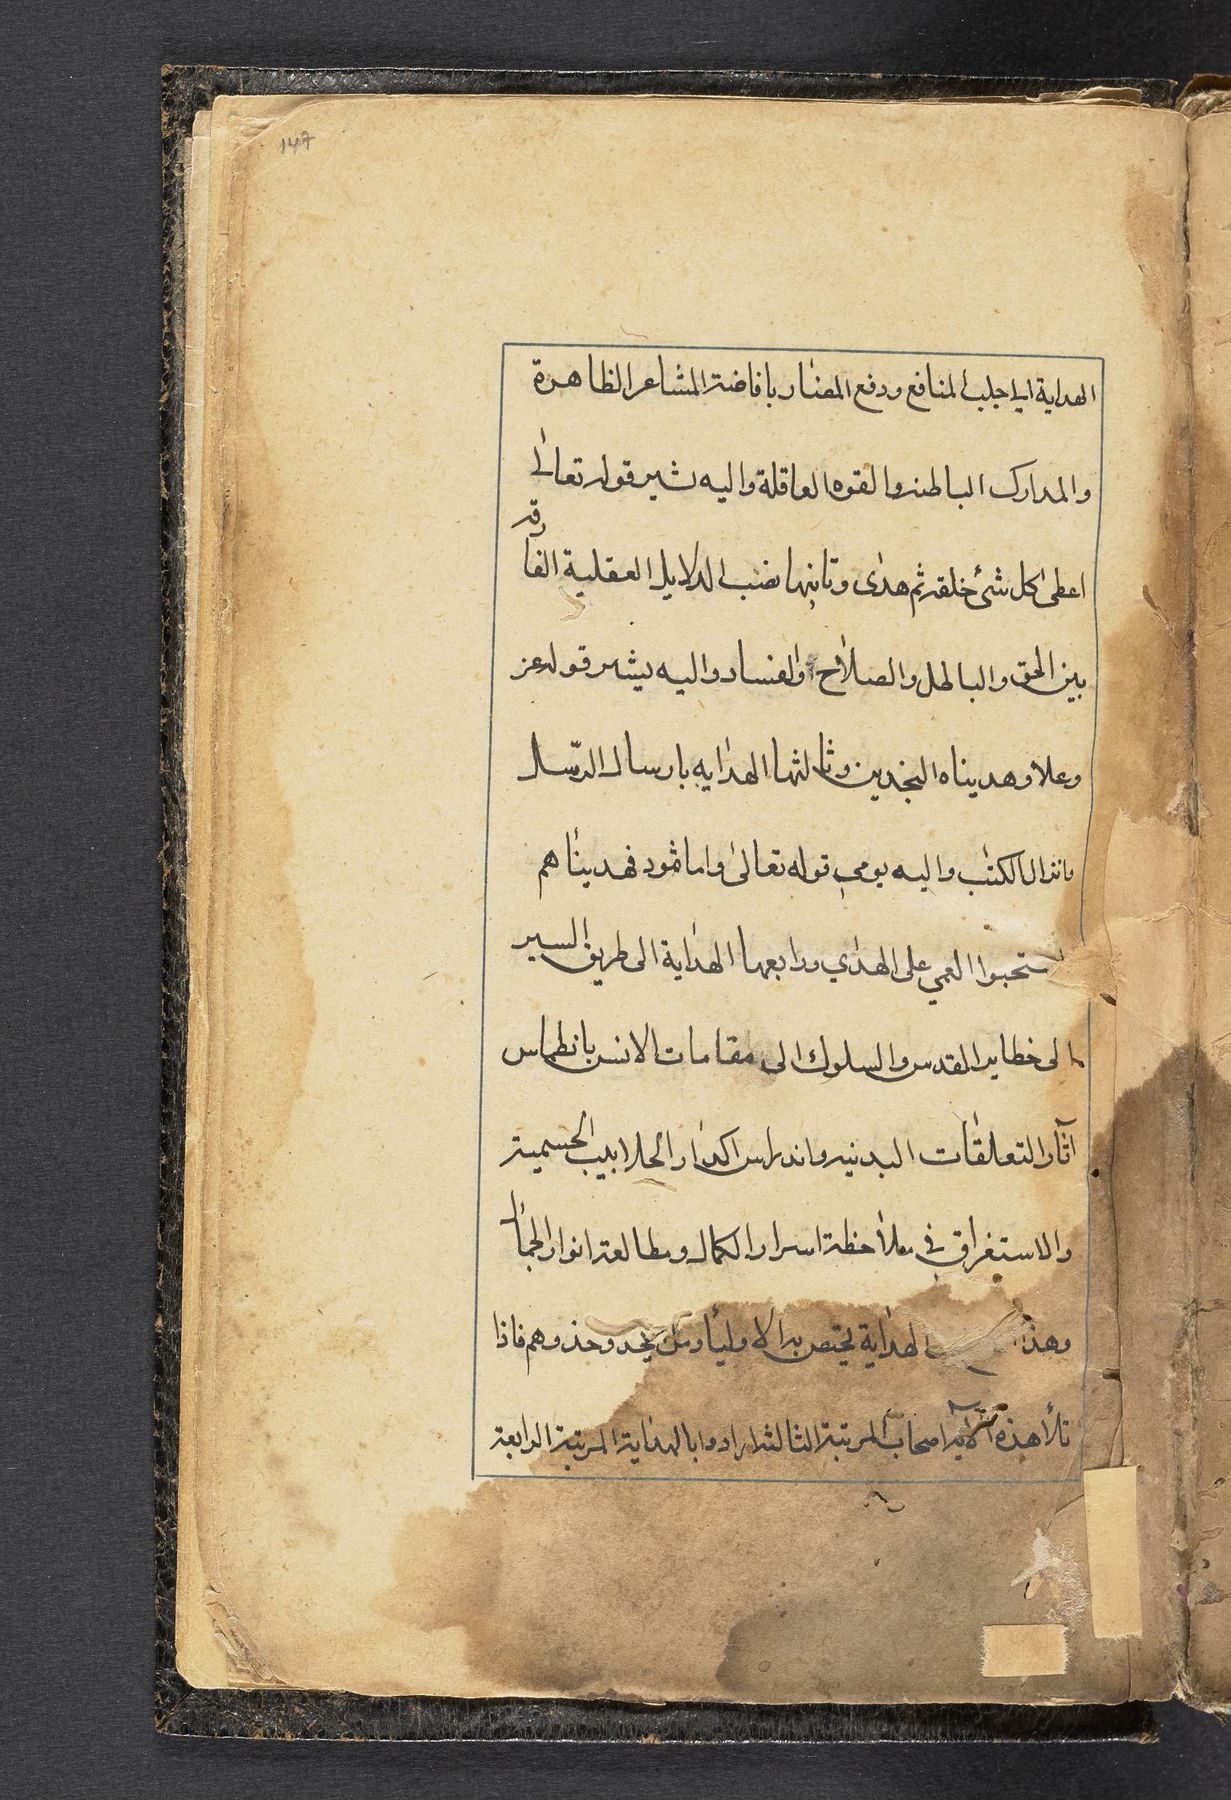 ١٤٧
الهداية الى جلب المنافع ودفع المضار بافاضة المشاعر الظاهرة
والمدارك الباطنه والقوه العاقلة واليه يشير قوله تعالى
اعطى كل شئ خلقه ثم هدى وثانيها نصب الدلايل العقلية الفارقه
بين الحق والباطل والصلاح والفساد واليه يشير قوله عز
وعلا وهديناه النجدين وثالثها الهدايه بارسال الرسّل
وانزال الكتب واليه يومي قوله تعالى واما ثمود فهديناهم
ستحبوا العمي على الهدي ورابعها الهداية الى طريق السير
الى خطاير القدس والسلوك الى مقامات الانس بانطماس
آثار التعلقات البدنيه واندراس اكدار الجلابيب الجسمية
والاستغراق في ملاحظة اسرار الكمال ومطالعة انوار الجمال
وهذا الهداية يختص به الاوليأ ومن يحذو حذوهم فاذا
تلأ هذه الآية اصحاب المرتبة الثالثة ارادوا بالهداية المرتبة الرابعة